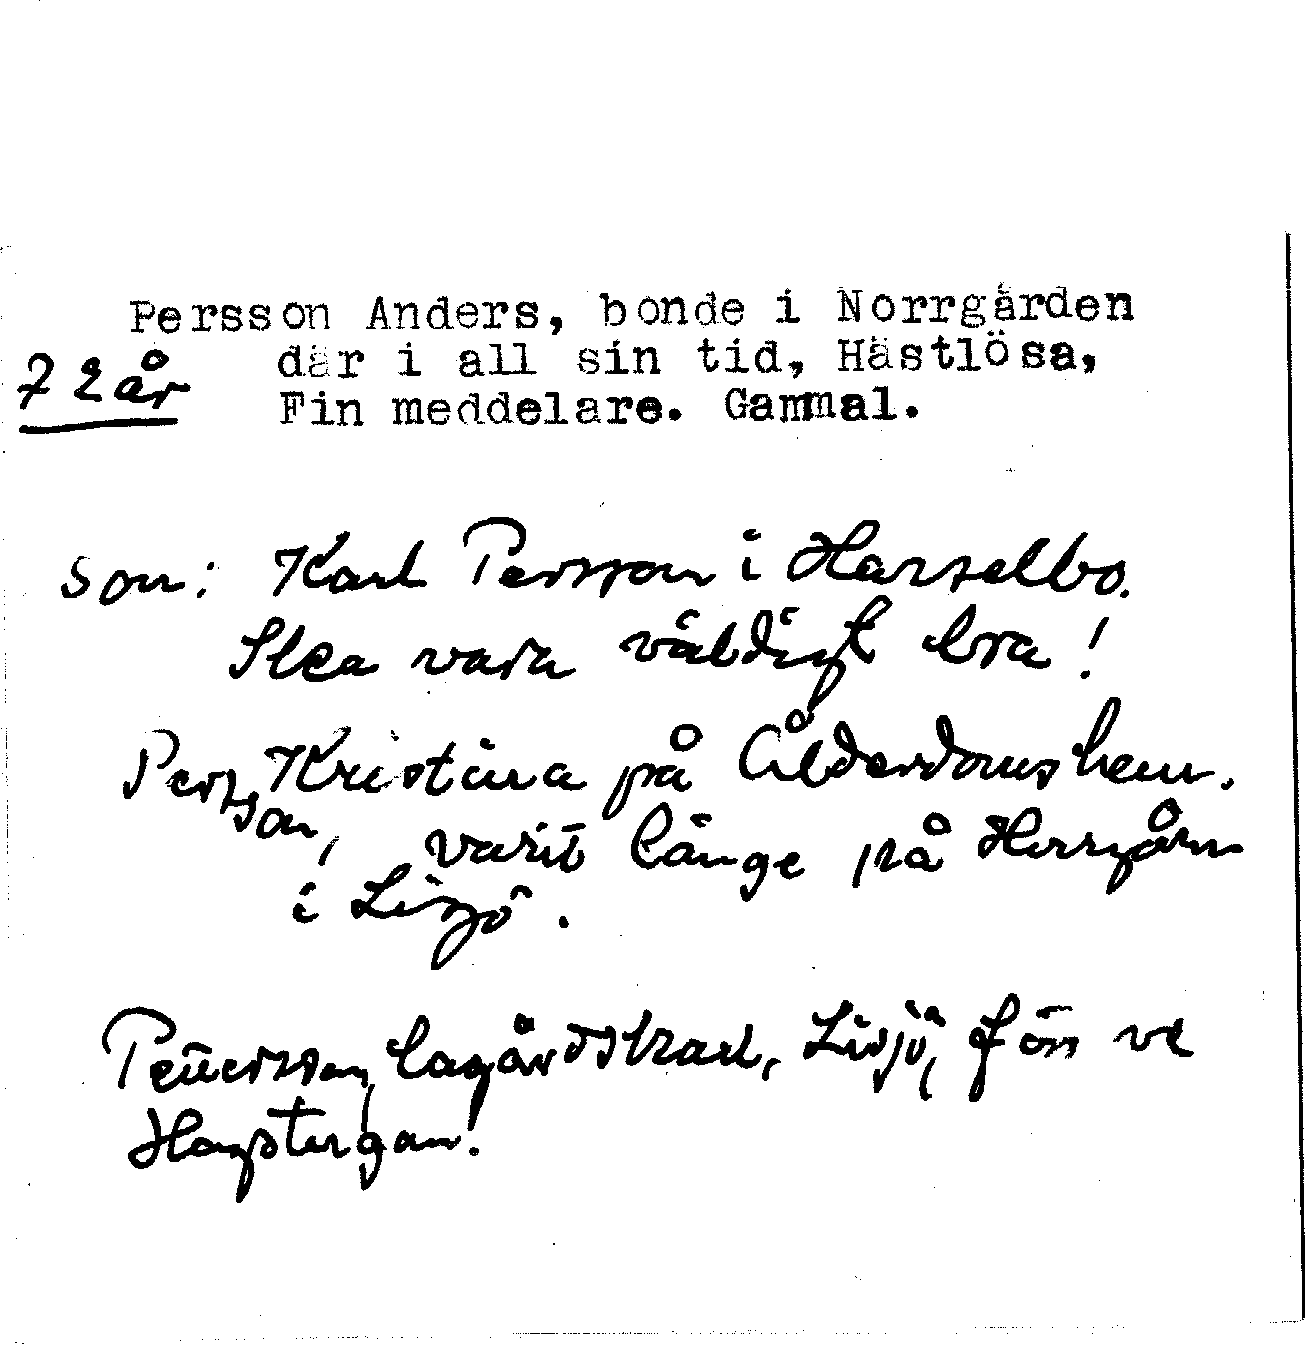 Persson Anders, bonde i Norrgården
72 år där i all sin tid, Hästlösa,
Fin meddelare. Gammal.
son: Karl Persson i Harselbo.
Ska vara väldigt bra!
Persson, Kristina på Ålderdomshem.
varit länge på Herrgårn
i Lisjö.
Pettersson, lagårdskarl, Lisjö, förr ve